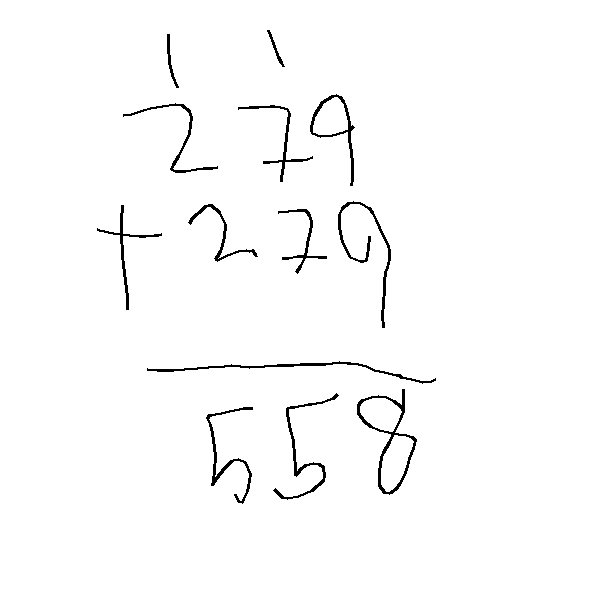 1 1
279
+ 279
558